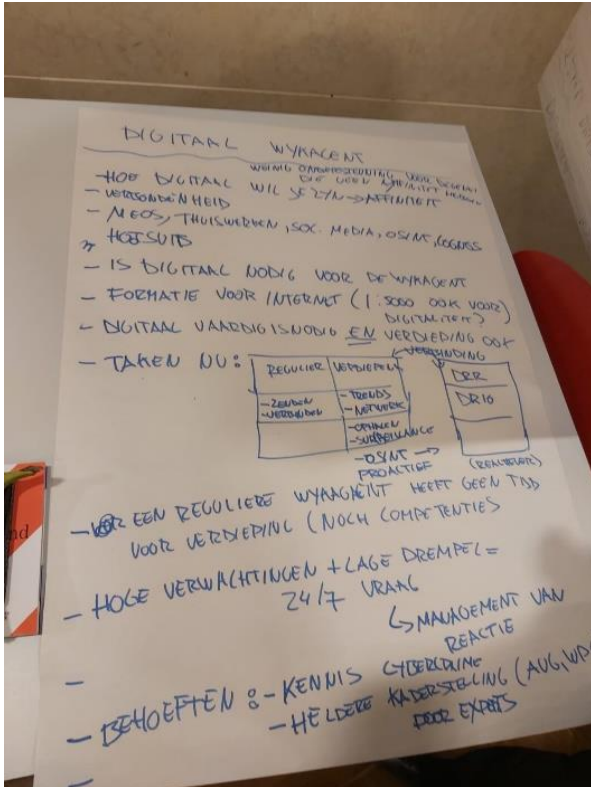 DIGITAAL WYKAGENT
WEINIG ONDERSTEUNING VOOR DEGENE
DIE GEEN AFFINITEIT HEBBEN
- HOE DIGITAAL WIL JE ZYN → AFFINITEIT
- VERBONDENHEID
- MEOS, THUISWERKEN, SOC. MEDIA, OSINT, COGNOS
HOOTSUITE
- IS DIGITAAL NODIG VOOR DE WYKAGENT
- FORMATIE VOOR INTERNET (1:5000 OOK VOOR)
DIGITALITEIT?
- DIGITAAL VAARDIG IS NODIG EN VERDIEPING OOK
- TAKEN NU:
VERBINDING
REGULIER VERDIEPEND
- ZENDEN
- VERBINDEN
- TRENDS
- NETWERK
- OPHALEN
- SURVEILLANCE
- OSINT →
PROACTIEF
DRR
DRIO
(REACTIEVER)
- EEN REGULIERE WYKAGENT HEEFT GEEN TIJD
VOOR VERDIEPING (NOCH COMPETENTIES
- HOGE VERWACHTINGEN + LAGE DREMPEL =
24/7 VRAAG
↳ MANAGEMENT VAN
REACTIE
-
- BEHOEFTEN: - KENNIS CYBERCRIME
- HELDERE KADERSTELLING (AVG, WPG
DOOR EXPERTS
-
nd